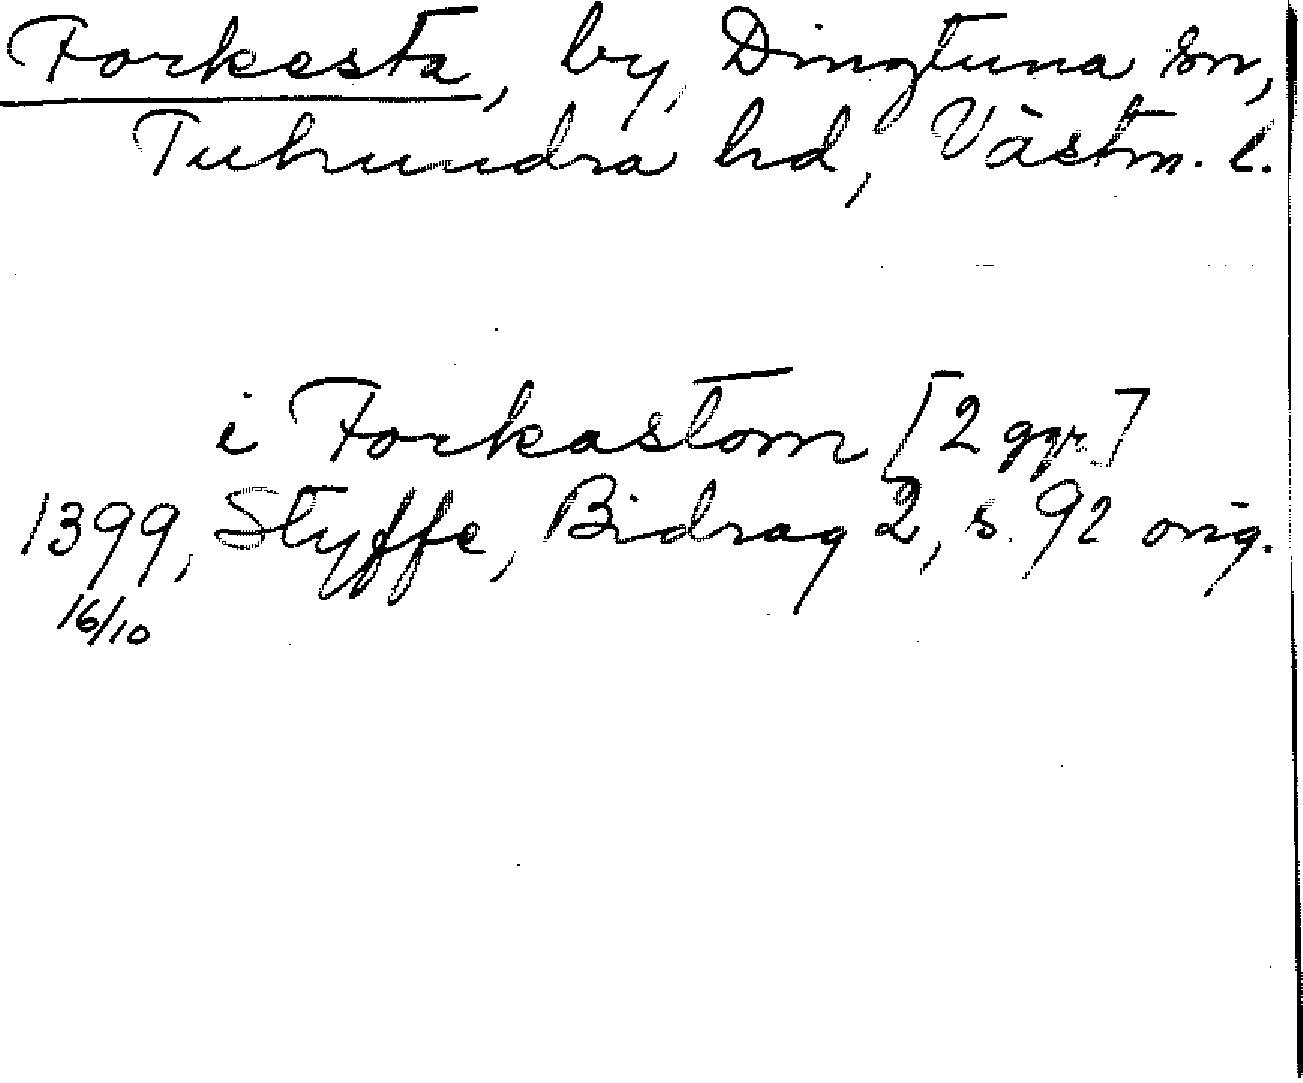 Forkesta, by, Dingtuna sn,
Tuhundra hd, Västm. l.
i Forkastom [2 ggr.]
1399, Styffe, Bidrag 2, s. 92 orig.
16/10